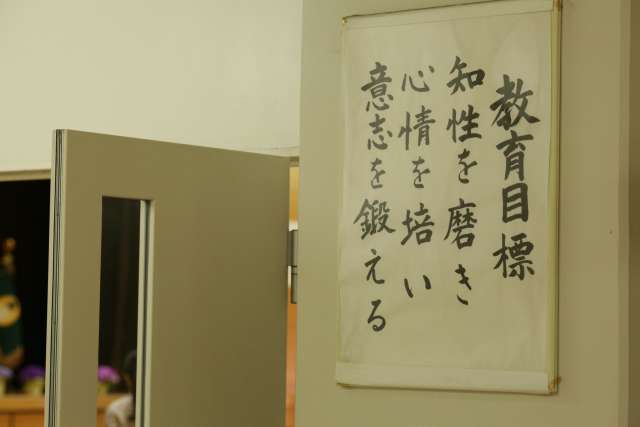 教育目標
知性を磨き
心情を培い
意志を鍛える